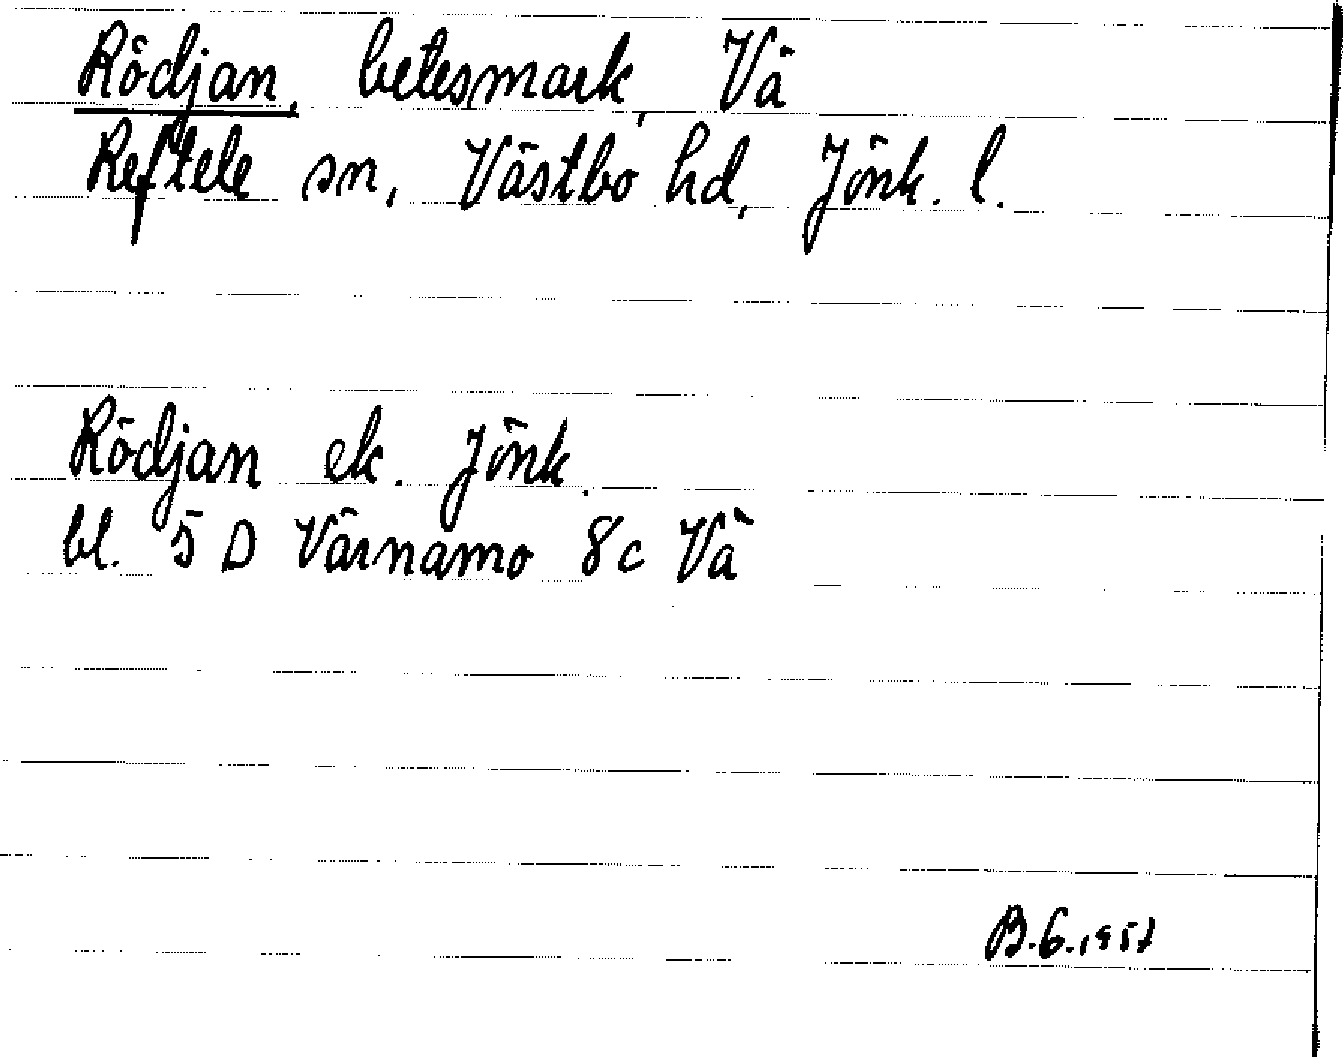 Rödjan, betesmark, Vä
Reftele sn, Västbo hd, Jönk. l.
Rödjan ek. Jönk.
bl. 5 D Värnamo 8c Vä
B.G. 1951